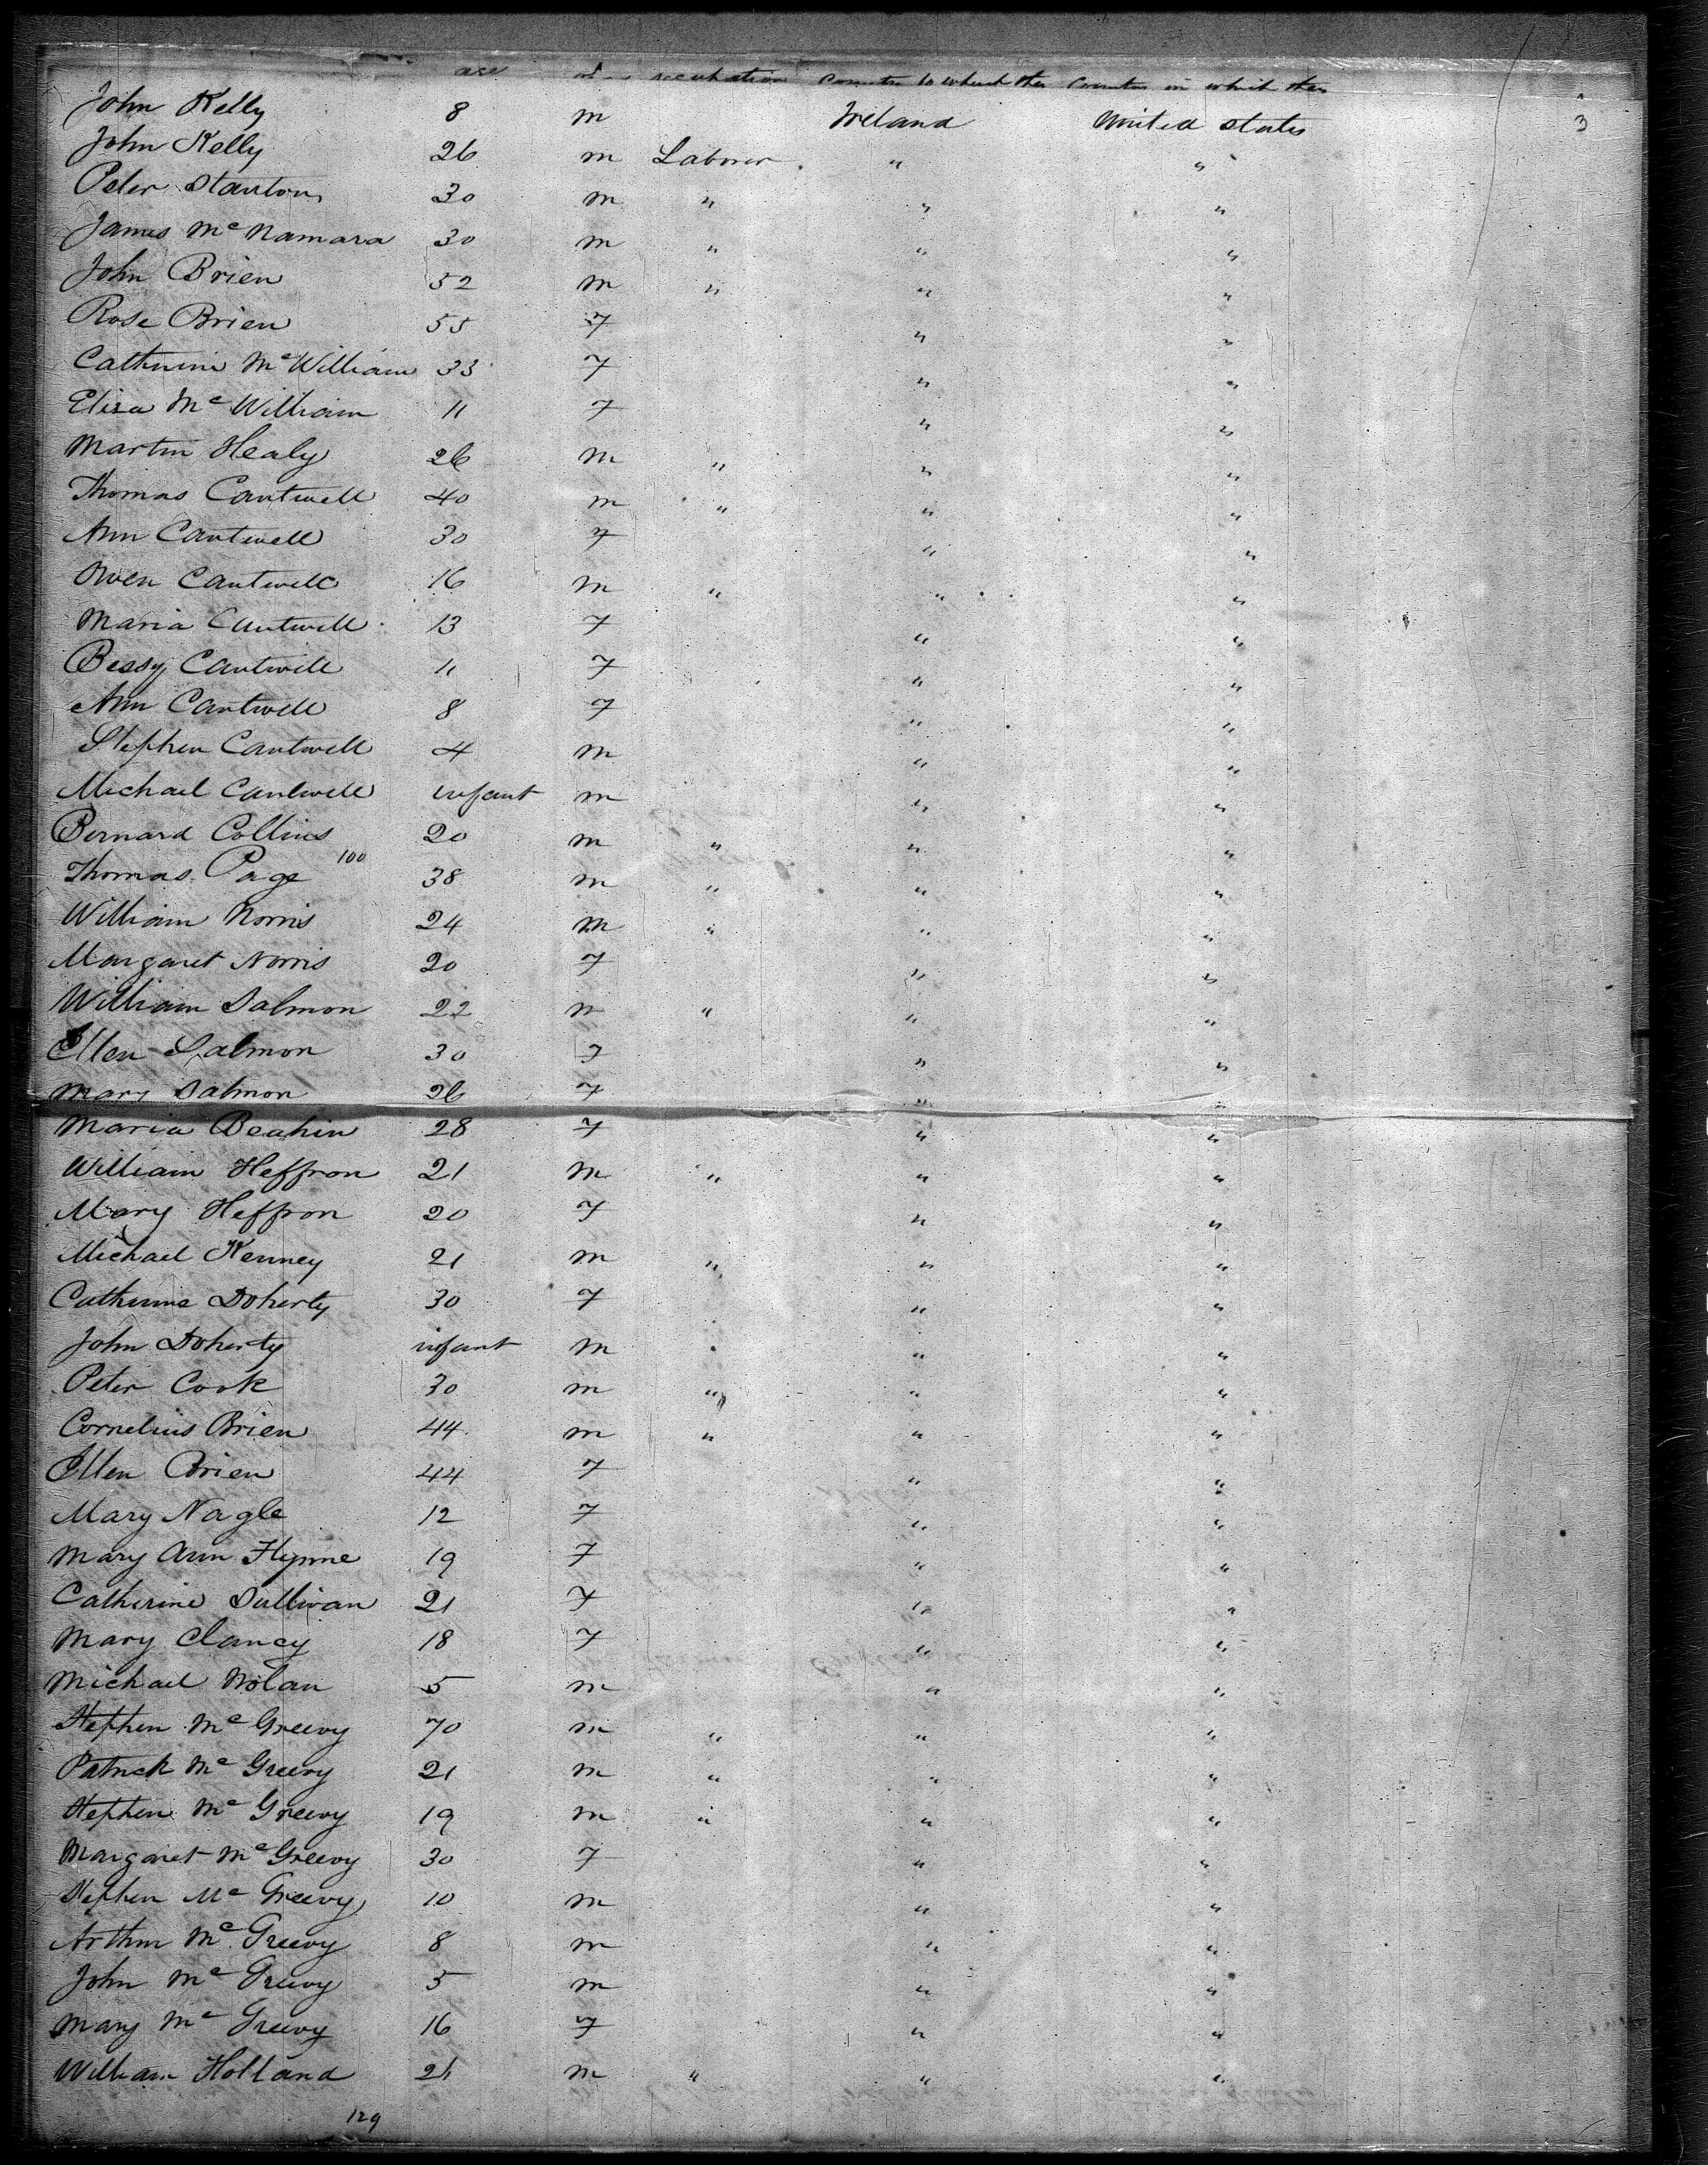 age occupation country to which they country in which they
John Kelly 8 m Ireland United States 3
John Kelly 26 m Laborer " "
Peter Stanton 30 m " " "
James Mc Namara 30 m " " "
John Brien 52 m " " "
Rose Brien 55 F " "
Catherine Mc William 33 F " "
Eliza Mc William 11 F " "
Martin Healy 26 m " " "
Thomas Cantwell 40 m " " "
Ann Cantwell 30 F " "
Owen Cantwell 16 m " " "
Maria Cantwell 13 F " "
Bessy Cantwell 11 F " "
Ann Cantwell 8 F " "
Stephen Cantwell 4 m " "
Michael Cantwell infant m " "
Bernard Collins 20 m " " "
Thomas Page 100 38 m " " "
William Norris 24 m " " "
Margaret Norris 20 F " "
William Salmon 22 m " " "
Ellen Salmon 30 F " "
Mary Salmon 26 F " "
Maria Beahin 28 F " "
William Heffron 21 m " " "
Mary Heffron 20 F " "
Michael Kenney 21 m " " "
Catherine Doherty 30 F " "
John Doherty infant m " "
Peter Cook 30 m " " "
Cornelius Brien 44 m " " "
Ellen Brien 44 F " "
Mary Nagle 12 F " "
Mary Ann Flynne 19 F " "
Catherine Sullivan 21 F " "
Mary Clancy 18 F " "
Michael Nolan 5 m " "
Stephen Mc Greevy 70 m " " "
Patrick Mc Greevy 21 m " " "
Stephen Mc Greevy 19 m " " "
Margaret Mc Greevy 30 F " "
Stephen Mc Greevy 10 m " "
Arthur Mc Greevy 8 m " "
John Mc Greevy 5 m " "
Mary Mc Greevy 16 F " "
William Holland 21 m " " "
129